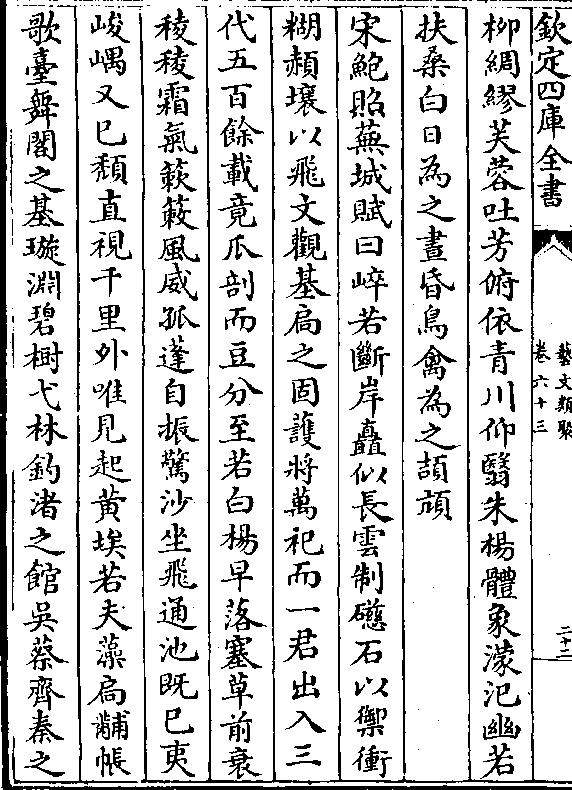 欽定四庫全書
藝文類聚
卷六十三
二十二
柳綢繆芙蓉吐芳俯依青川仰翳朱楊體象濛汜幽若
扶桑白日為之晝昏鳥禽為之頡頏
宋鮑照蕪城賦曰崪若斷岸矗似長雲制礠石以禦衝
糊赬壤以飛文觀基扃之固護將萬祀而一君出入三
代五百餘載竟瓜剖而豆分至若白楊早落塞草前衰
稜稜霜氣蔌蔌風威孤蓬自振驚沙坐飛通池既已夷
峻嵎又已頹直視千里外唯見起黃埃若夫藻扃黼帳
歌臺舞閣之基璇淵碧樹弋林釣渚之館吳蔡齊秦之